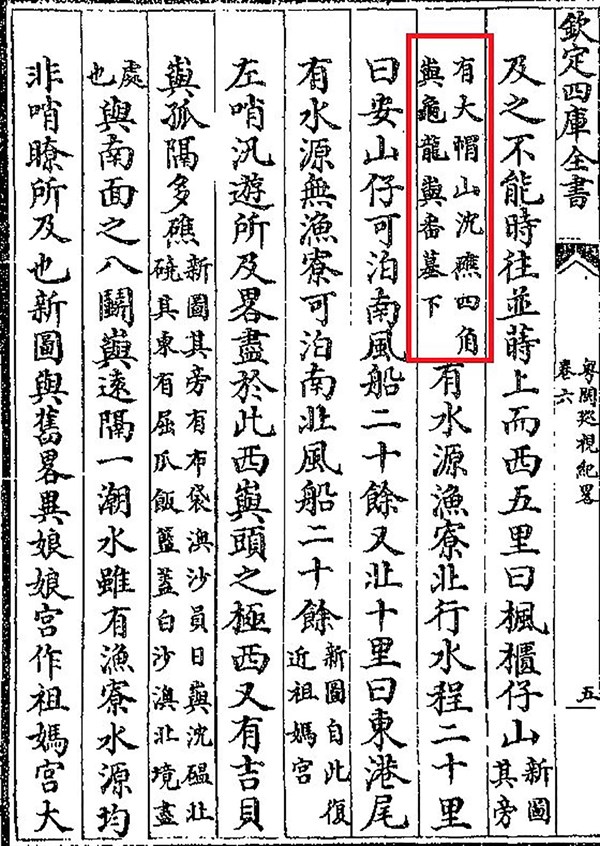 欽定四庫全書
粤閩巡視紀畧
卷六
五
及之不能時往並蒔上而西五里曰楓櫃仔山新圖
其旁
有大帽山沈礁四角
嶼龜龍嶼番墓下
有水源漁寮北行水程二十里
曰安山仔可泊南風船二十餘又北十里曰東港尾
有水源無漁寮可泊南北風船二十餘新圖自此復
近祖媽宮
左哨汎遊所及畧盡於此西嶼頭之極西又有吉貝
嶼孤隔多礁
新圖其旁有布袋澳沙員日嶼沈北
硗其東有屈爪飯籃葢白沙澳北境盡
處
也
與南面之八鬭嶼遠隔一潮水雖有漁寮水源均
非哨瞭所及也新圖與舊畧異娘娘宮作祖媽宮大